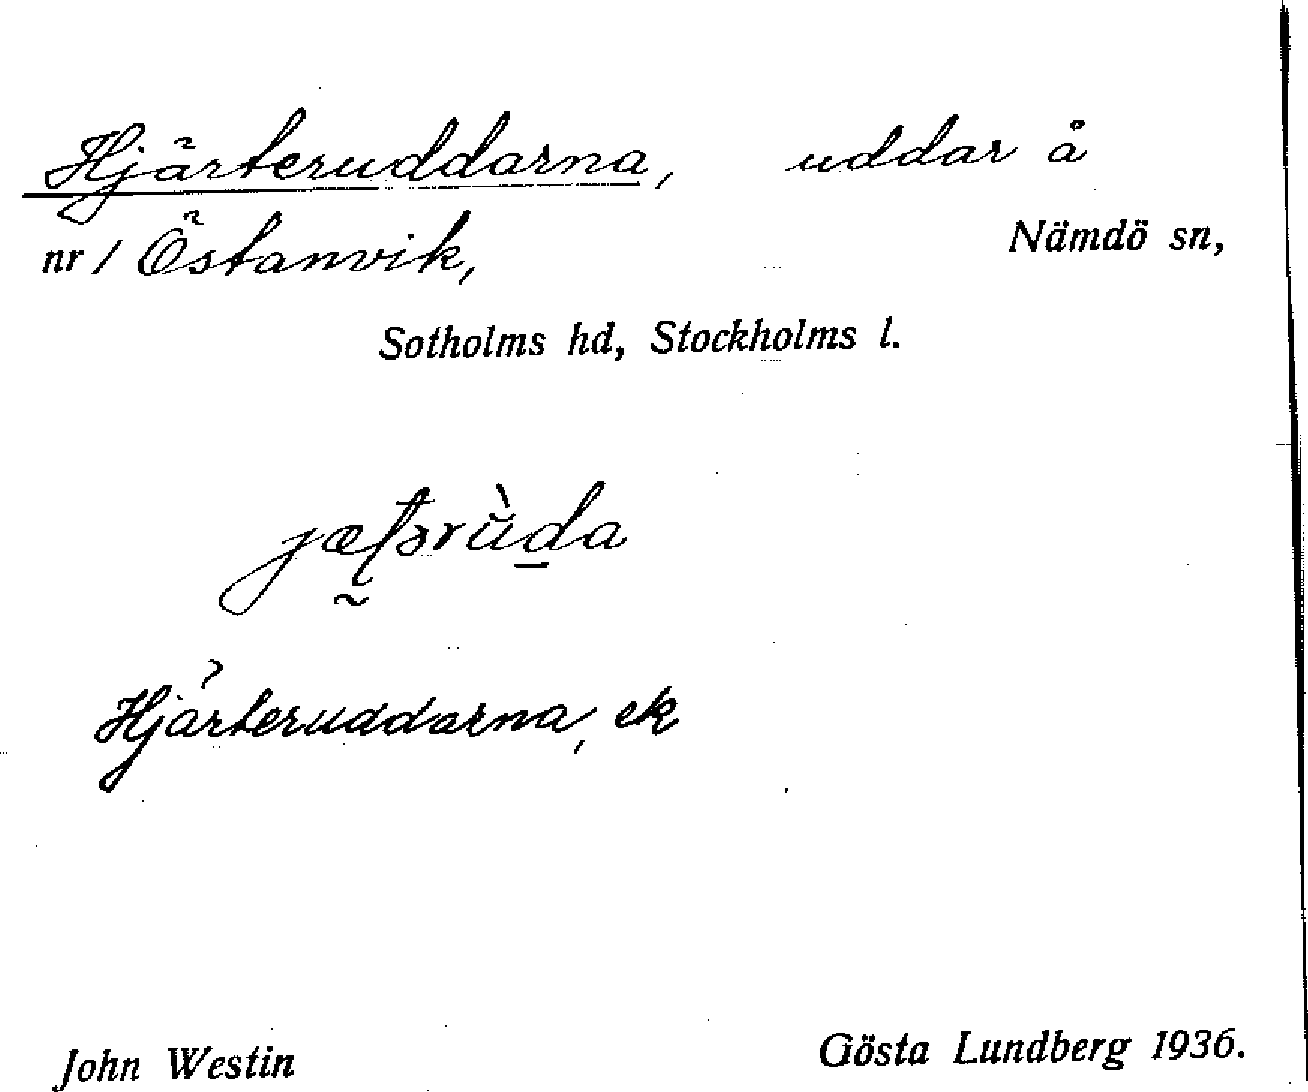 Hjärteruddarna, uddar å
nr 1 Östanvik, Nämdö sn,
Sotholms hd, Stockholms l.
Hjärteruddarna, ek
John Westin Gösta Lundberg 1936.